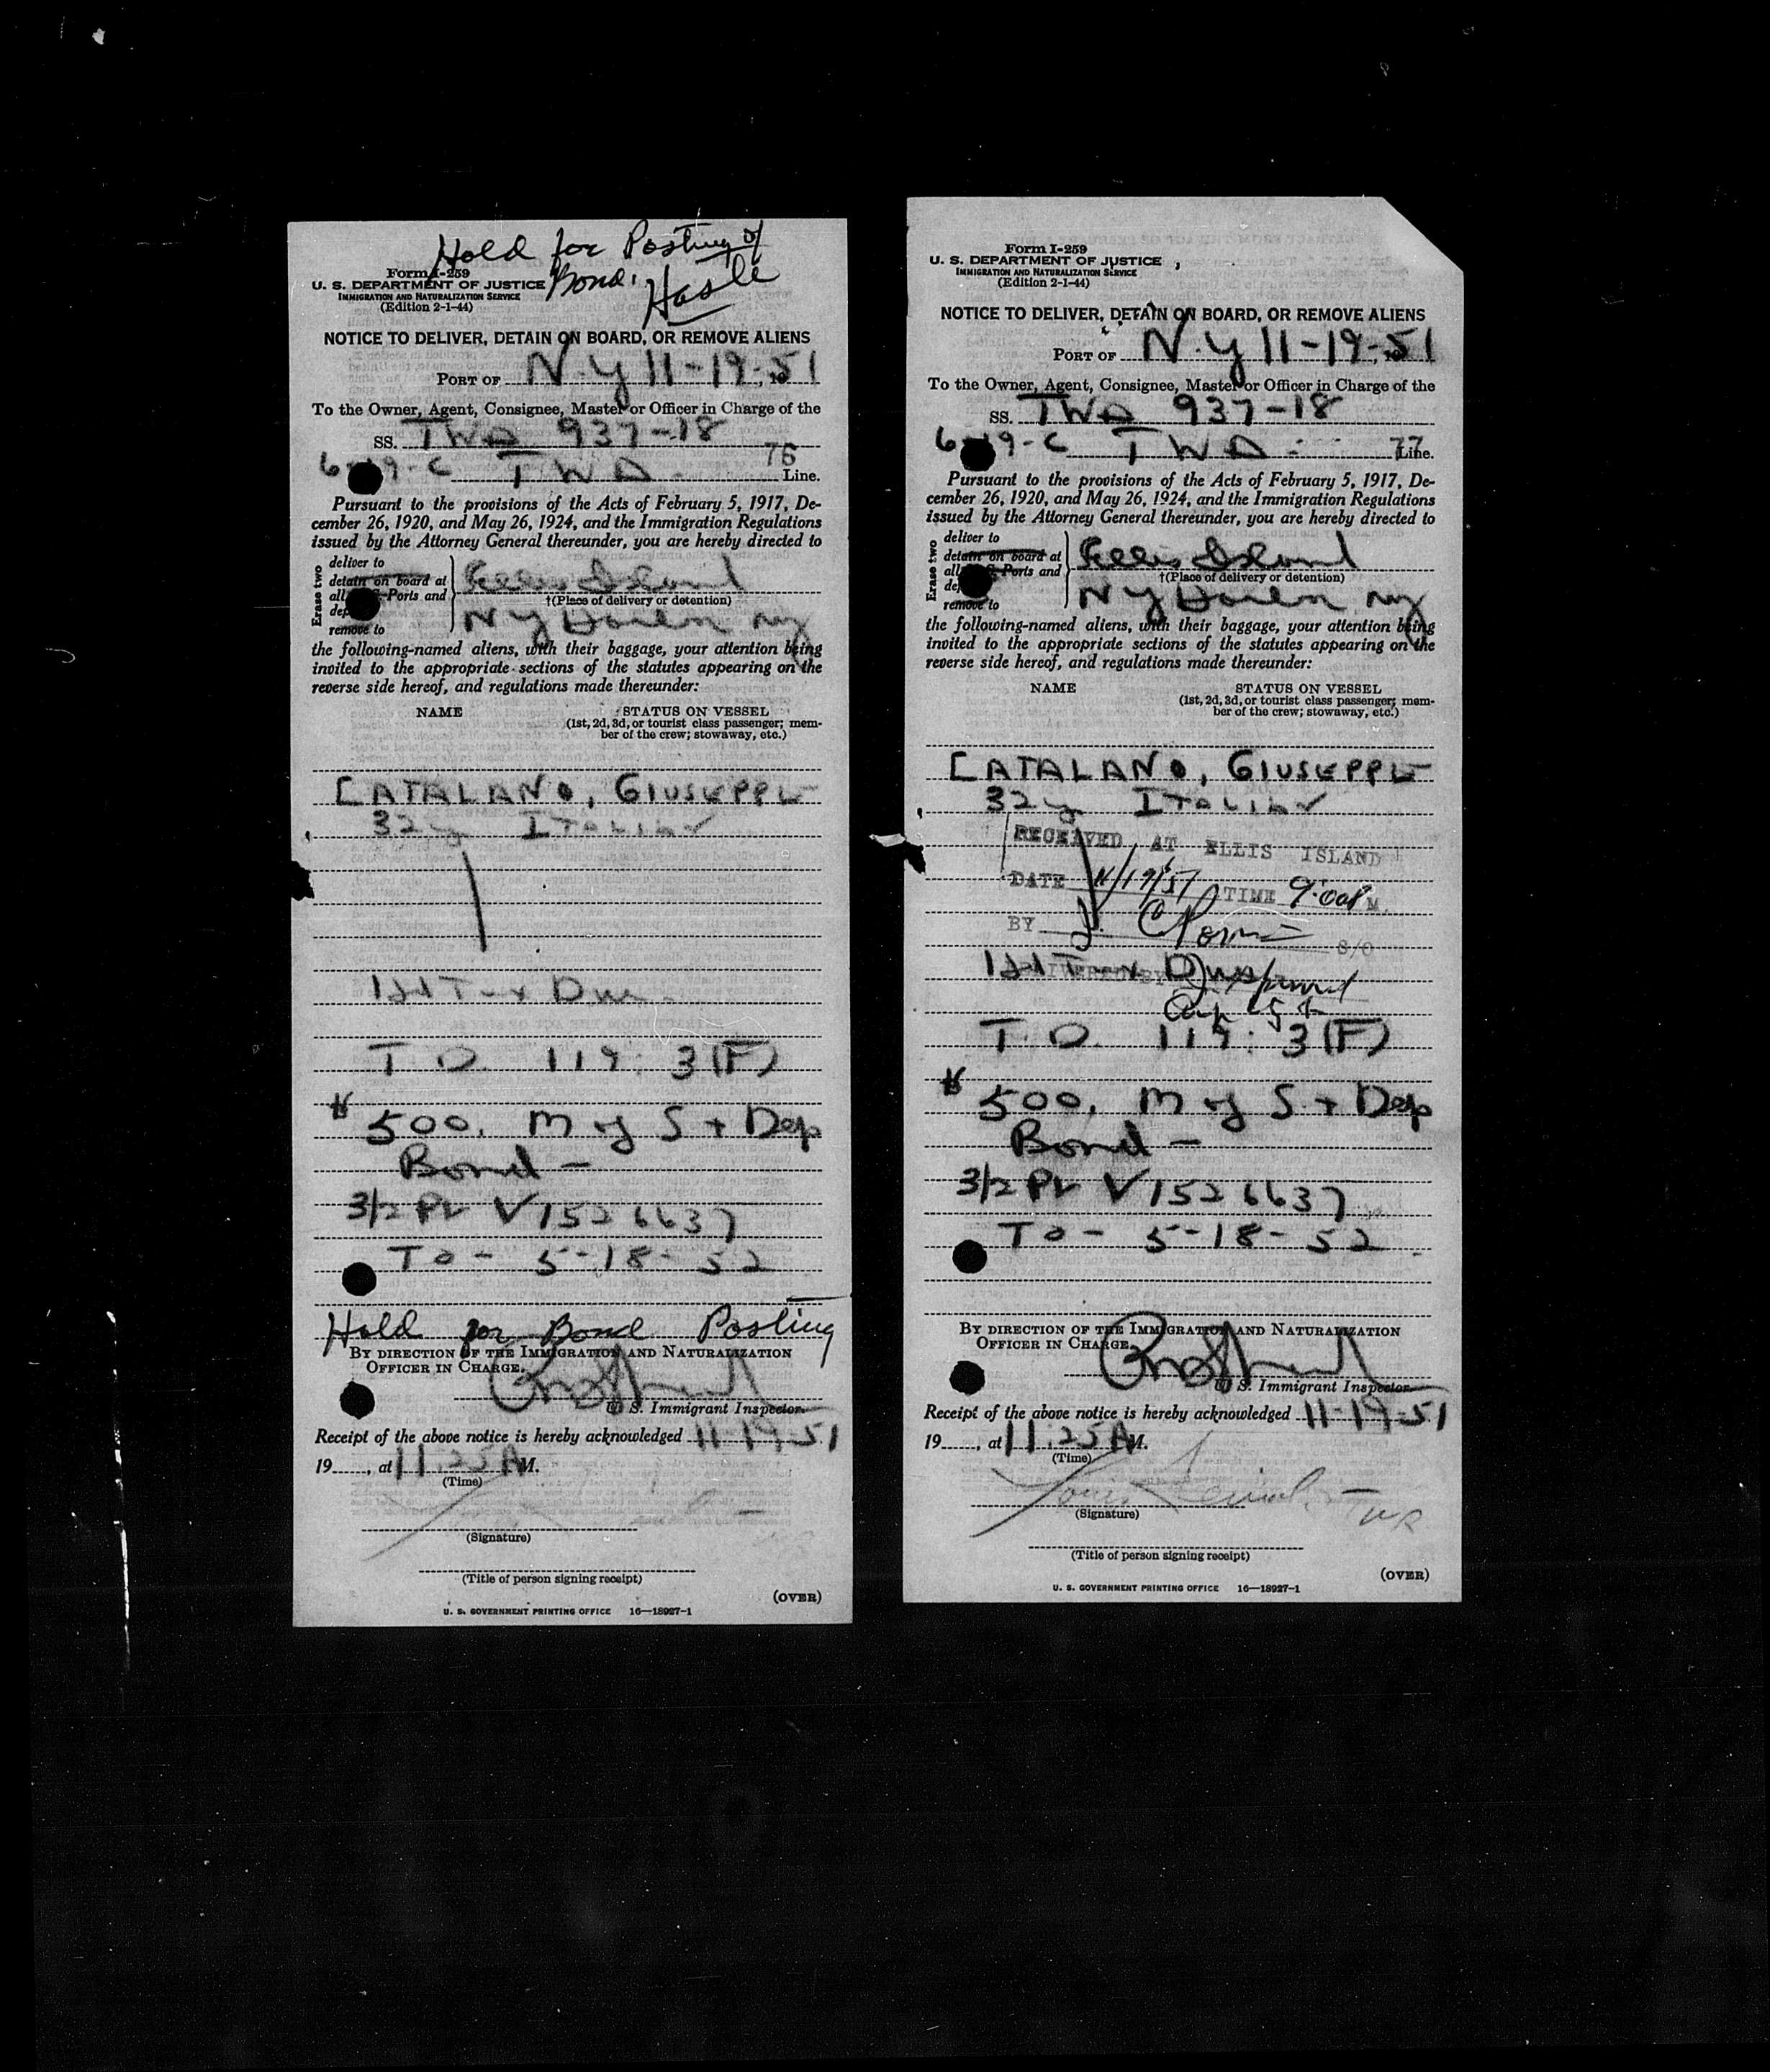 Hold for Posting of
Bond.
Form I-259
U. S. DEPARTMENT OF JUSTICE
IMMIGRATION AND NATURALIZATION SERVICE
(Edition 2-1-44)
NOTICE TO DELIVER, DETAIN ON BOARD, OR REMOVE ALIENS
PORT OF N.Y 11-19-51
To the Owner, Agent, Consignee, Master or Officer in Charge of the
SS. TWA 937-18
76
6-19-C TWA Line.
Pursuant to the provisions of the Acts of February 5, 1917, De-
cember 26, 1920, and May 26, 1924, and the Immigration Regulations
issued by the Attorney General thereunder, you are hereby directed to
Erase two
deliver to
detain on board at
all Ports and
remove to
Ellis Island
†(Place of delivery or detention)
N Y Harbor NY
the following-named aliens, with their baggage, your attention being
invited to the appropriate sections of the statutes appearing on the
reverse side hereof, and regulations made thereunder:
NAME
STATUS ON VESSEL
(1st, 2d, 3d, or tourist class passenger; mem-
ber of the crew; stowaway, etc.)
CATALANO, GIUSEPPE
32 y Italian
T.D. 119: 3(F)
$ 500. M of S + Dep
Bond -
3/2 PV V1526637
To - 5-18-52
Hold for Bond Posting
BY DIRECTION OF THE IMMIGRATION AND NATURALIZATION
OFFICER IN CHARGE.
U. S. Immigrant Inspector.
Receipt of the above notice is hereby acknowledged 11-19-51
19, at 11:25 A M.
(Time)
(Signature)
(Title of person signing receipt)
(OVER)
U. S. GOVERNMENT PRINTING OFFICE 16—18927-1
Form I-259
U. S. DEPARTMENT OF JUSTICE
IMMIGRATION AND NATURALIZATION SERVICE
(Edition 2-1-44)
NOTICE TO DELIVER, DETAIN ON BOARD, OR REMOVE ALIENS
PORT OF N.Y 11-19-51
To the Owner, Agent, Consignee, Master or Officer in Charge of the
SS. TWA 937-18
6-19-C TWA 77 Line.
Pursuant to the provisions of the Acts of February 5, 1917, De-
cember 26, 1920, and May 26, 1924, and the Immigration Regulations
issued by the Attorney General thereunder, you are hereby directed to
Erase two
deliver to
detain on board at
all Ports and
remove to
Ellis Island
†(Place of delivery or detention)
N Y Harbor NY
the following-named aliens, with their baggage, your attention being
invited to the appropriate sections of the statutes appearing on the
reverse side hereof, and regulations made thereunder:
NAME
STATUS ON VESSEL
(1st, 2d, 3d, or tourist class passenger; mem-
ber of the crew; stowaway, etc.)
CATALANO, GIUSEPPE
32 y Italian
RECEIVED AT ELLIS ISLAND
DATE 11/19/51 TIME 9:00P M.
BY S/O
T.D. 119: 3(F)
$ 500. M of S + Dep
Bond -
3/2 PV V1526637
To - 5-18-52
BY DIRECTION OF THE IMMIGRATION AND NATURALIZATION
OFFICER IN CHARGE.
U. S. Immigrant Inspector.
Receipt of the above notice is hereby acknowledged 11-19-51
19, at 11:25 A M.
(Time)
(Signature)
(Title of person signing receipt)
(OVER)
U. S. GOVERNMENT PRINTING OFFICE 16—18927-1